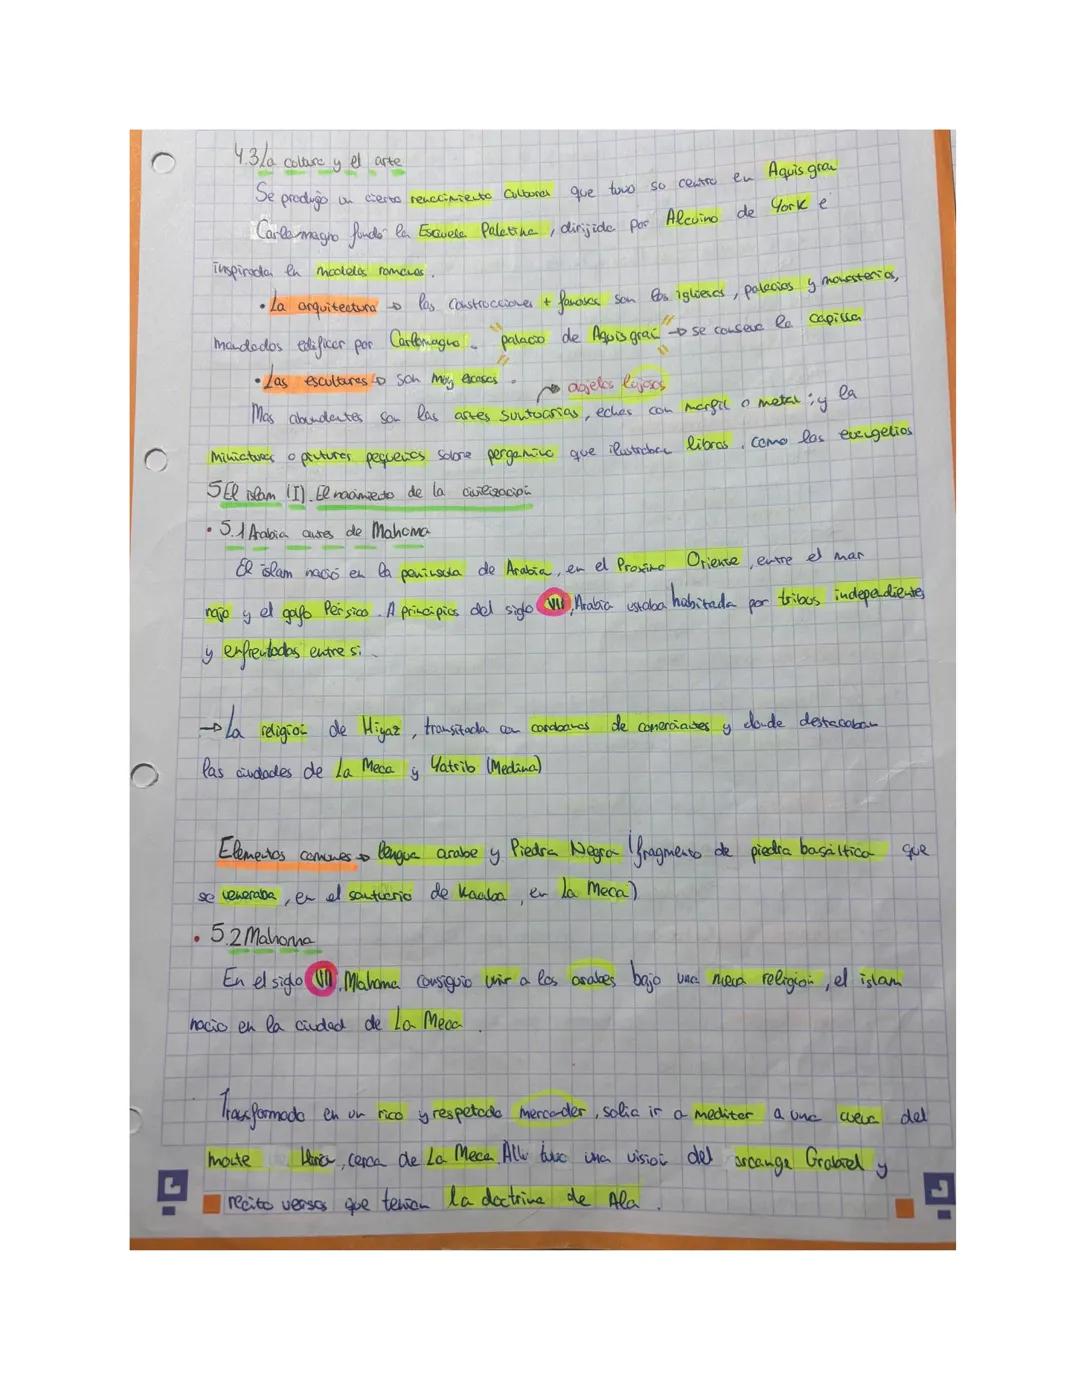 4.3 La cultura y el arte
Se produjo un cierto renacimiento cultural que tuvo so centro en Aquisgran
Carlomagno fundó la Escuela Palatina, dirijida por Alcuino de York e
inspirada en modelos romanos.
• La arquitectura → las construcciones + famosas son las iglesias, palacios y monasterios,
mandados edificar por Carlomagno. "palacio de Aquisgran" → se conserva la capilla
• Las esculturas → son muy escasas. → objetos lujosos
Mas abundantes son las artes suntuarias, echas con marfil o metal; y la
miniaturas o pinturas pequeñas sobre pergamino que ilustraban libros, como los evangelios
5 El islam (I). El nacimiento de la civilización
• 5.1 Arabia antes de Mahoma
El islam nació en la peninsula de Arabia, en el Proximo Oriente, entre el mar
rojo y el golfo Pérsico. A principios del siglo VII, Arabia estaba habitada por tribus independientes
y enfrentadas entre si.
→ La religion de Hiyaz, transitada con carabanas de comerciantes y donde destacaban
las ciudades de La Meca y Yatrib (Medina)
Elementos comunes → lengua arabe y Piedra Negra (fragmento de piedra basáltica que
se veneraba, en el santuario de Kaaba, en La Meca)
• 5.2 Mahoma
En el siglo VII, Mahoma consiguio unir a los arabes bajo una nueva religion, el islam
nacio en la ciudad de La Meca.
Transformado en un rico y respetado mercader, solia ir a meditar a una cueva del
monte Hira, cerca de La Meca. Alli tuvo una vision del arcange Grabiel y
recito versos que tenian la doctrina de Ala.